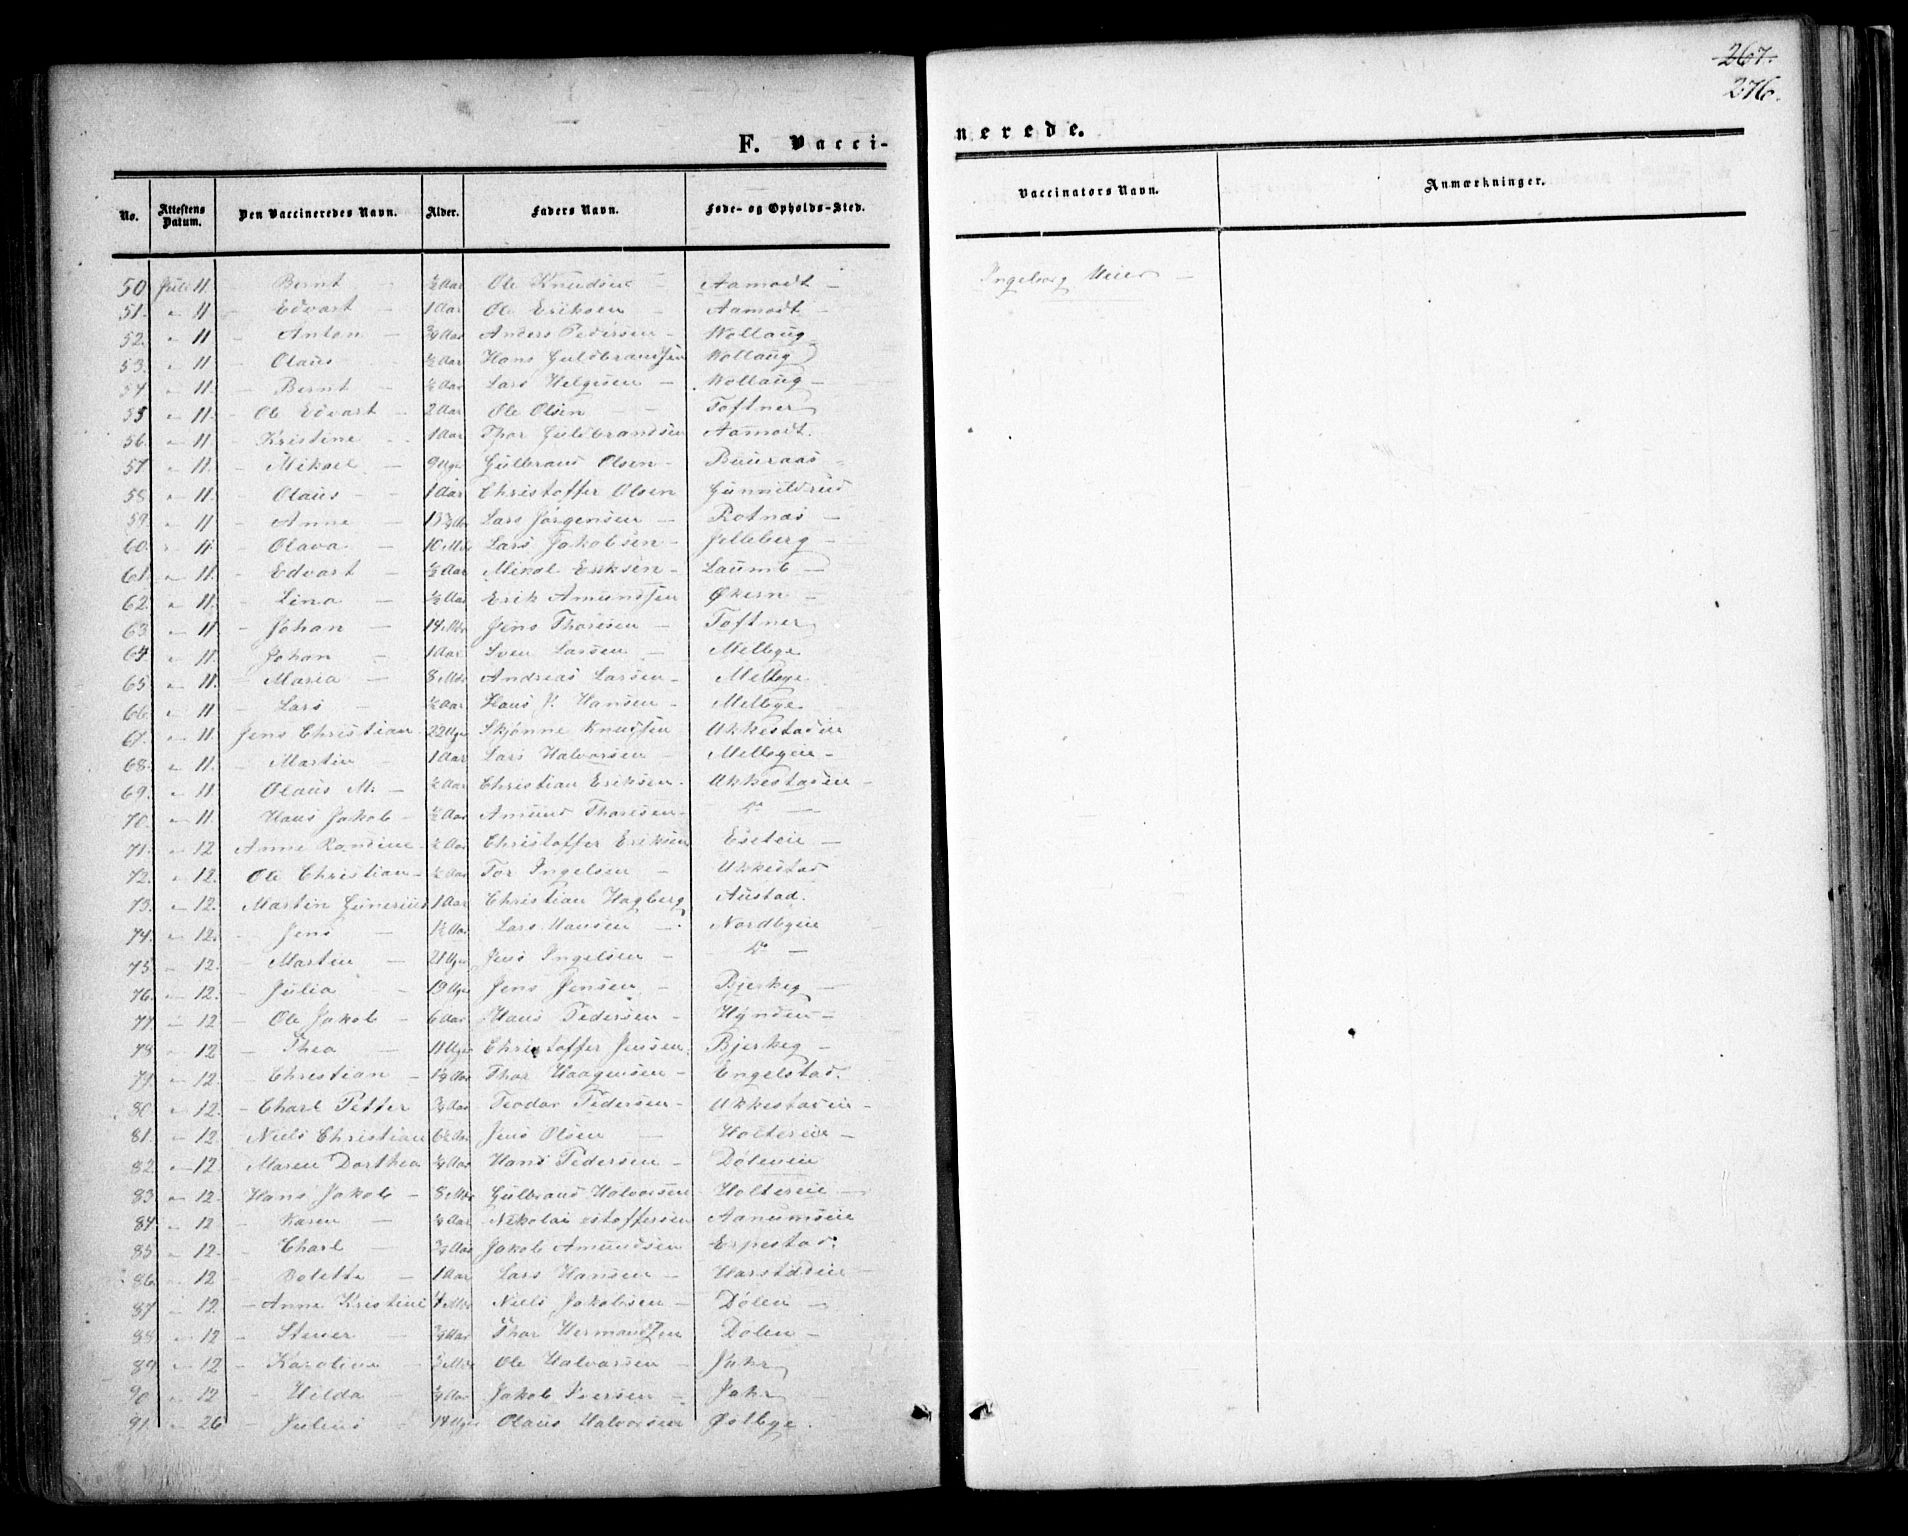 267.
276.
F. Vacci-
nerede.
No. Attestens Datum. Den Vaccineredes Navn. Alder. Faders Navn. Føde- og Opholds-Sted. Vaccinators Navn. Anmærkninger.
50 Juli 11. Bernt ½ Aar Ole Knudsen Aamodt Ingeborg Meier
51. " 11 Edvart 1 Aar Ole Eriksen Aamodt
52. " 11 Anton ¾ Aar Anders Pedersen Wollaug
53. " 11 Olaus ½ Aar Hans Guldbrandsen Wollaug
54 " 11. Bernt Aar Lars Helgesen Wollaug
55 " 11. Ole Edvart 2 Aar Ole Olsen Toftner
56. " 11 Kristine 1 Aar Thor Guldbrandsen Aamodt.
57 " 11. Mikael 9 Uger Gulbrand Olsen Buuraas
58 " 11 Olaus 1 Aar Christoffer Olsen Gunnildrud
59 " 11 Anne Lars Jørgensen Rotnas
60 11. Olava 10 Mdr Lars Jakobsen Jelleberg
61 " 11. Edvart ½ Aar Mikal Eriksen Laumb
62 " 11. Lina ½ Aar Erik Amundsen Økern
63 " 11 Johan 14 Mdr Jens Thoresen Toftner
64 " 11 Johan 1 Aar Sven Larsen Melbye
65 " 11. Maria 8 Mdr Andreas Larsen Melbye
66 " 11 Lars ½ Aar Hans P. Hansen Melbye
67. " 11. Jens Christian 22 Uger Skjønne Knudsen Ukkestadeie
68. " 11. Martin 1 Aar Lars Halvorsen Melbyeie
69. " 11 Olaus M. ½ Aar Christian Eriksen Ukkestadeie
70. " 11. Hans Jakob ½ Aar Amund Thoresen do
71. " 12 Anne Randine ½ Aar Christoffer Eriksen Eseteie
72. " 12. Ole Christian ½ Aar Tor Ingelsen Ukkestad
73. " 12. Martin Gunerius 1 Aar Christian Hagberg Austad.
74. " 12. Jens 1½ Aar Lars Hansen Nordbyeie
75. " 12. Martin 21 Uger Jens Ingelsen do
76. " 12. Julia 19 Uger Jens Jensen Bjerkeg
77. " 12 Ole Jakob 6 Aar Hans Pedersen Hynden
78 " 12 Thea 11 Uger Christoffer Jensen Bjerkeg
79. " 12. Christian Thor Haagensen Engelstad.
80 " 12. Charl Petter ¾ Aar Teodor Pedersen Ukkestadeie
81. " 12 Niels Christian 6½ Aar Jens Olsen Holtereie
82. " 12 Maren Dorthea Aar Hans Pedersen Døleneie
83 " 12 Hans Jakob 8 Mdr Gulbrand Halvorsen Holtereie
84. " 12 Karen Aar Nikolai Aanumseie
85 " 12. Charl ¾ Aar Jakob Amundsen Erpestad.
86 12 Bolette 1 Aar Lars Hansen Harstadeie
87 " 12. Anne Kristine 4 Mdr Niels Jakobsen Dølen
88 " 12 Stener ¾ Aar Thor Hermandsen Dølen
89 " 12 Karoline Mdr Ole Halvorsen Jahr
90 " 12 Hilda Aar Jakob Iversen Jahr
91. " 26 Julius 14 Uger Olaus Halvorsen Østbye.